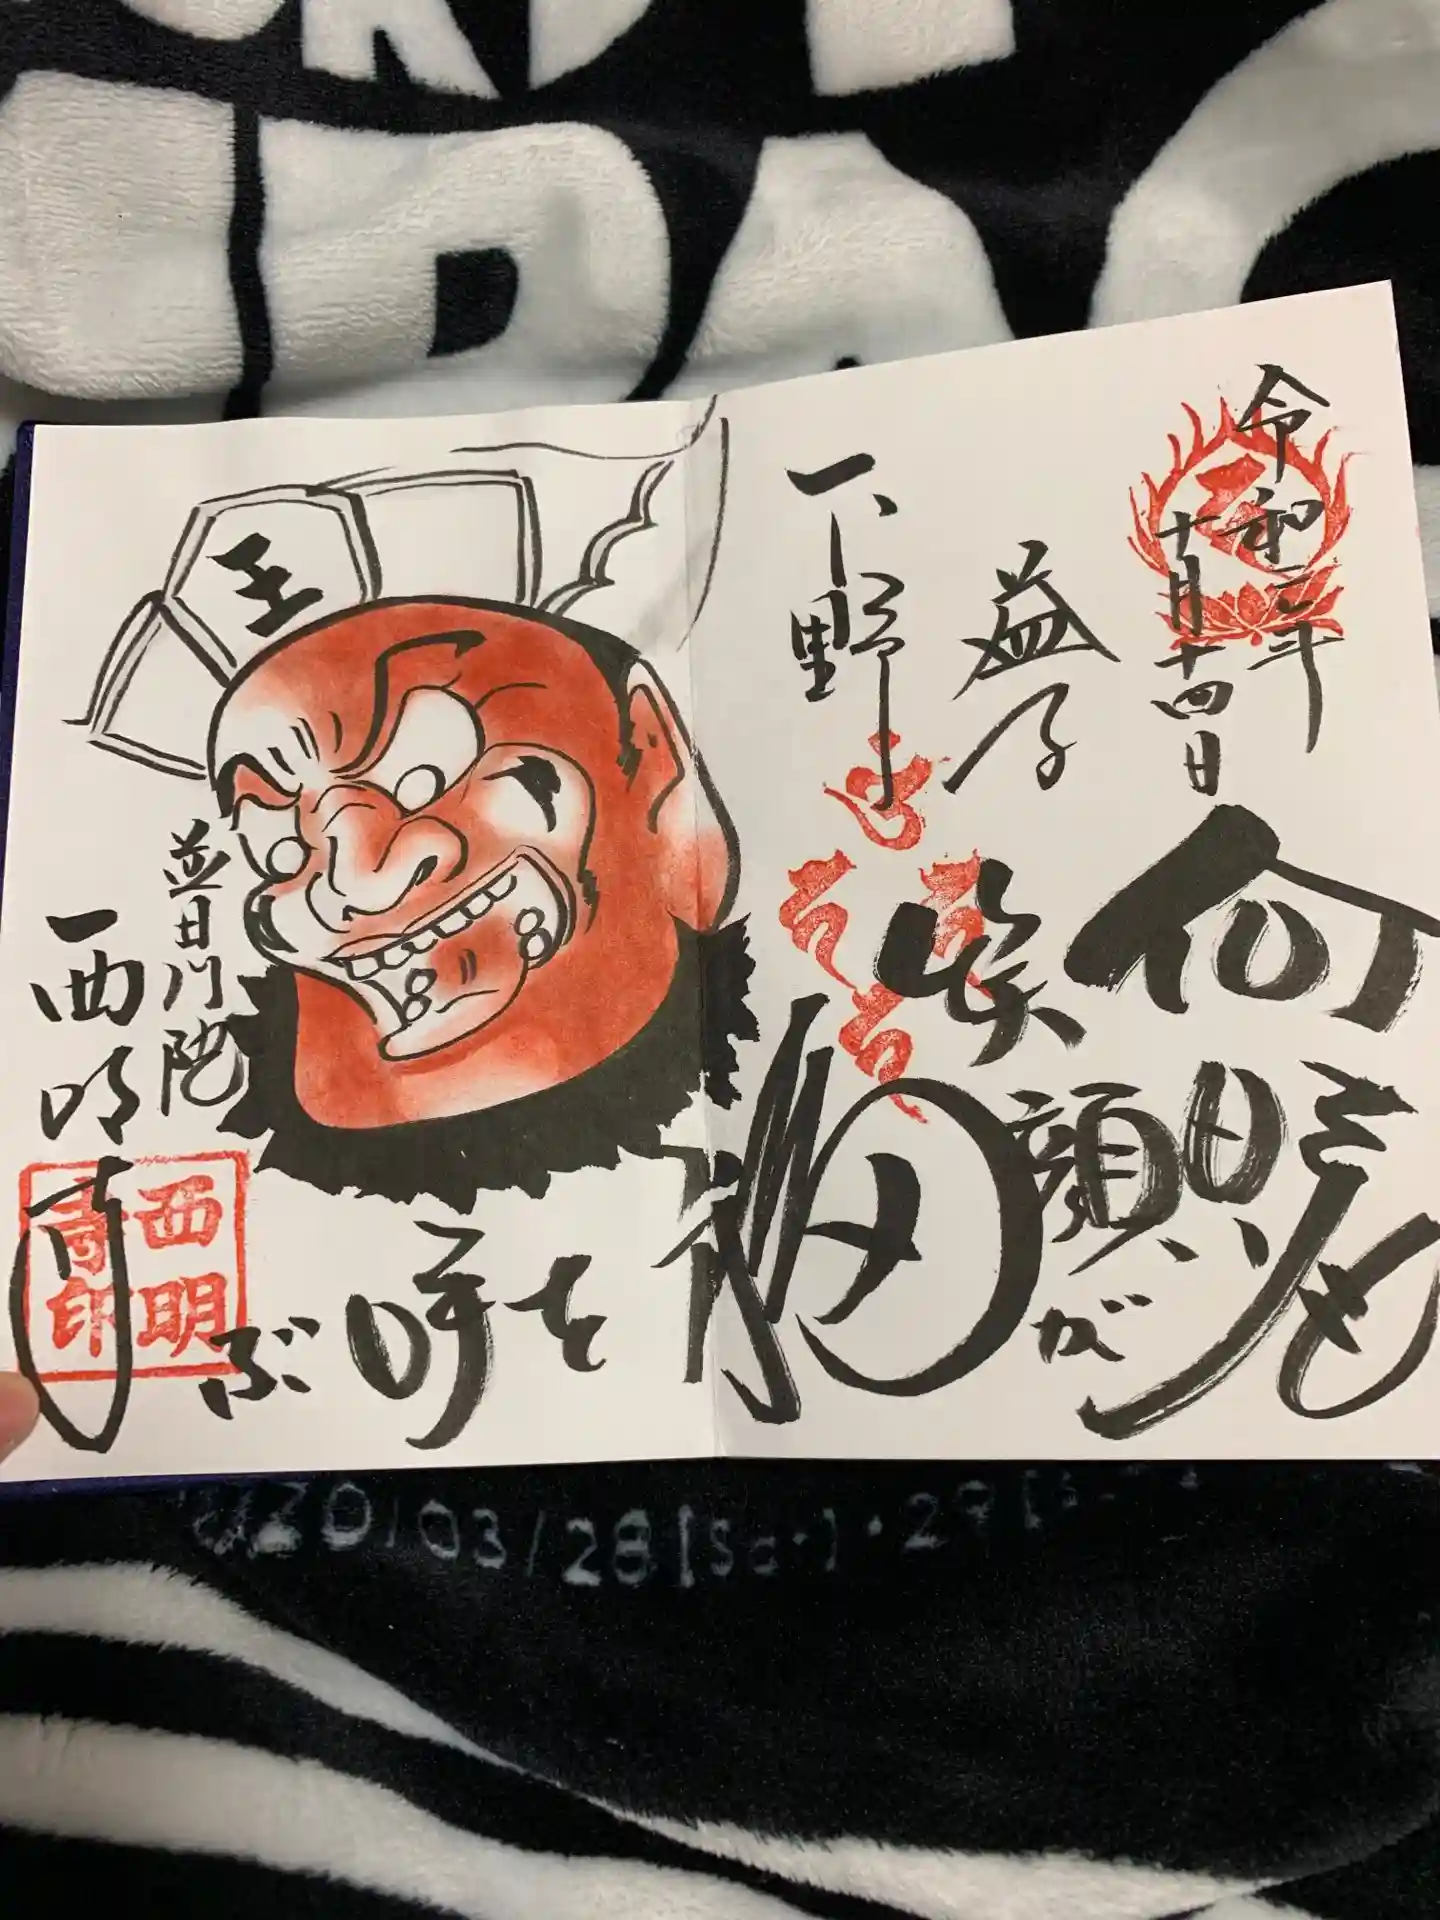 令和二年
十月十四日
益子
下野
何時も
笑顔が
福
を
呼
ぶ
王
普門院
西明寺
西明
寺印
2020/03/28[Sat]・29[S